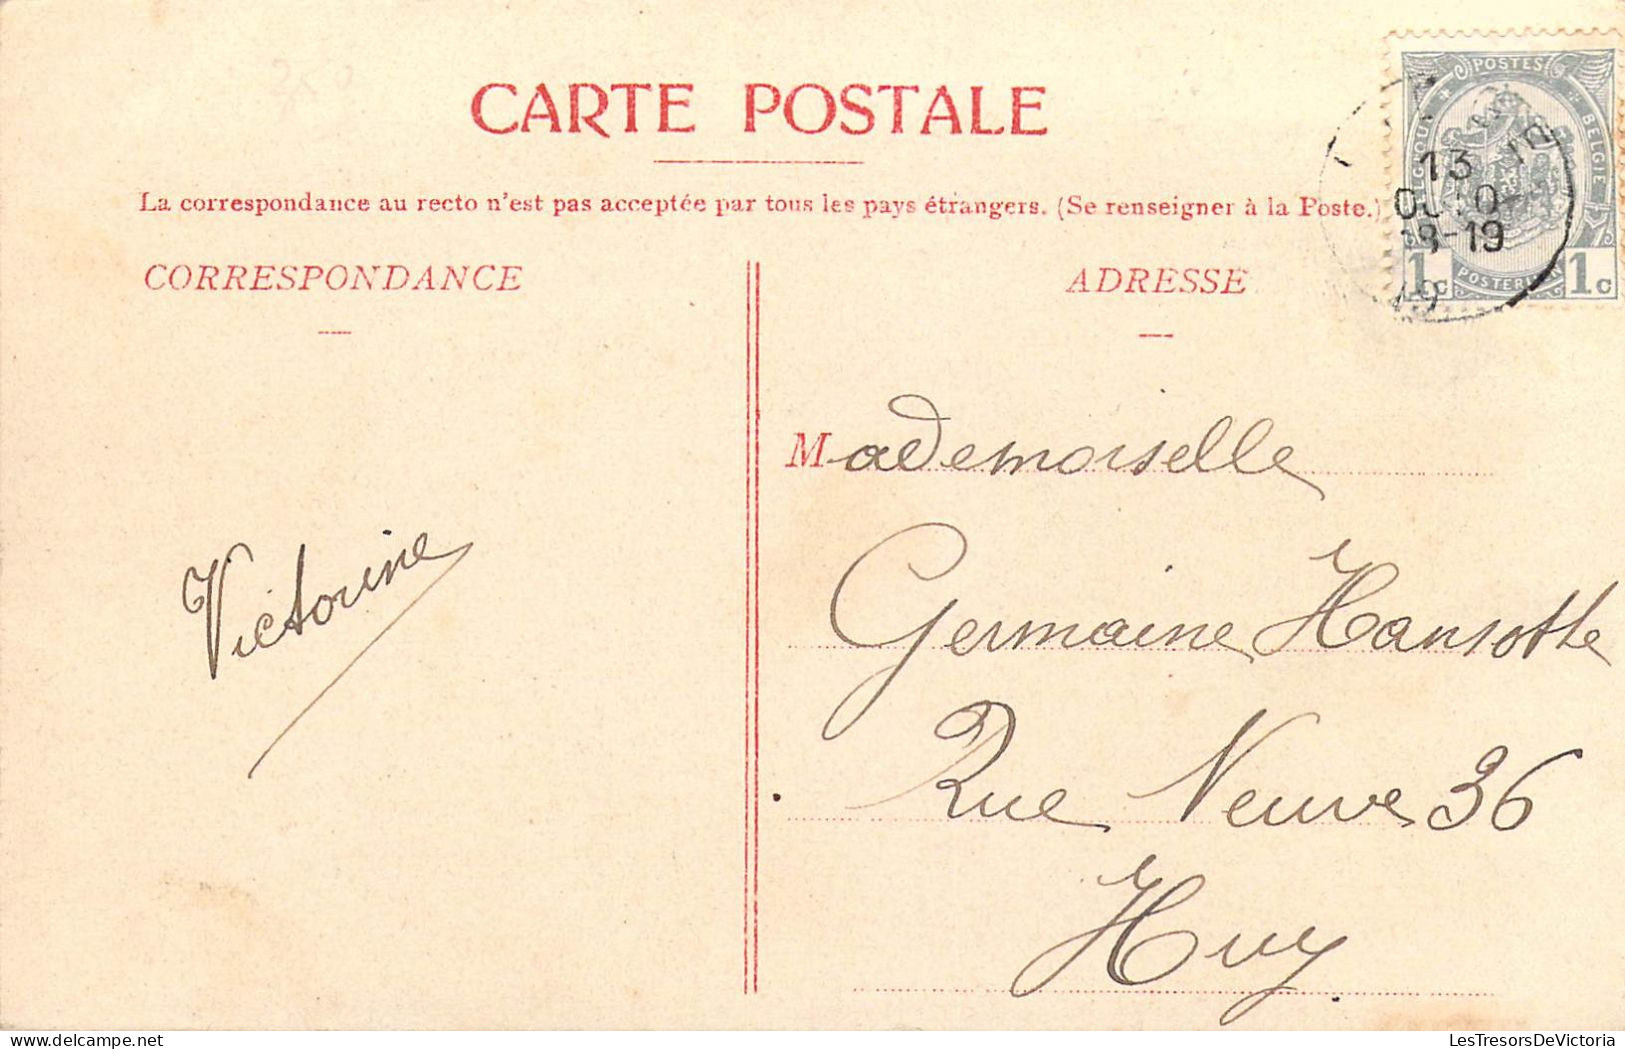 CARTE POSTALE
La correspondance au recto n'est pas acceptée par tous les pays étrangers. (Se renseigner à la Poste.)
CORRESPONDANCE
ADRESSE
POSTES
BELGIE
1c
1c
13
18-19
Mademoiselle
Germaine Hansotte
Rue Neuve 36
Huy
Victorine
LesTresorsDeVictoria